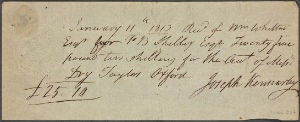 January 11th 1813 Recd of Wm Whitton
Esqr for P B Shelley Esqr Twenty five
pound ten shillings for the Acct of Messrs
Dry Taylors Oxford
£25.10 Joseph